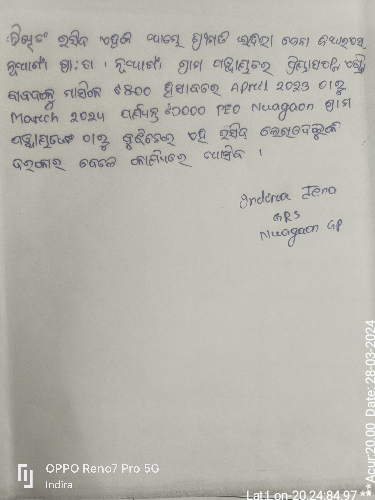 ଲିଖିତଂ ରସିଦ ଏହିକି ଆମେ ଶ୍ରୀମତି ଇନ୍ଦିରା ଜେନା ଜିଆରଏସ୍
ନୂଆଗାଁ ଗ୍ରା.ପ । ନୂଆଗାଁ ଗ୍ରାମ ପଞ୍ଚାୟତର
ବାବଦକୁ ମାସିକ ₹500 ହିସାବରେ April 2023 ଠାରୁ
March 2024 ପର୍ଯ୍ୟନ୍ତ ₹6000 PEO Nuagaon ଗ୍ରାମ
ପଞ୍ଚାୟତଙ୍କ ଠାରୁ ବୁଝିନେଇ ଏହି ରସିଦ ଲେଖିଦେଲୁକି
ଦରକାର ବେଳେ କାର୍ଯ୍ୟରେ ଆସିବ ।
Indira Jena
GRS
Nuagaon GP
OPPO Reno7 Pro 5G
Indira
Lat Lon-20.24:84.97 **Acur:20.00 Date: 28-03-2024